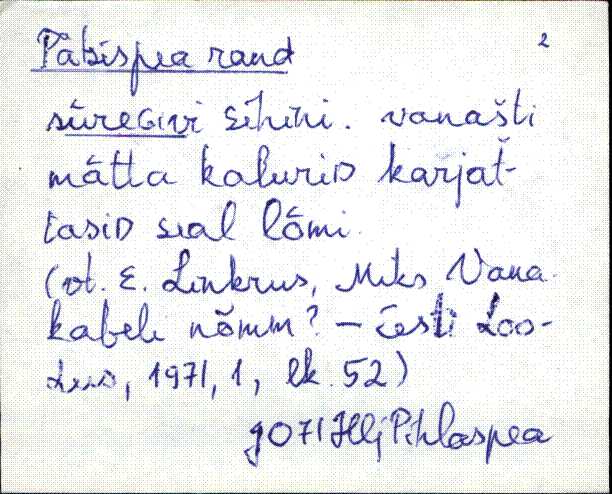 2
Päbispea rand
sūreGivi sihini. vanašti
mätta kaluriD karjat-
tasiD seal lõmi.
(vt. E. Linkrus, Miks Vana-
kabeli nõmm? – Eesti Loo-
dus, 1971, 1, lk. 52)
Pihlaspea